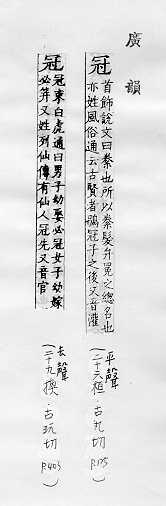 廣韻
冠 首飾說文曰絭也所以絭髮弁冕之總名也
亦姓風俗通云古賢者鶡冠子之後又音灌
平聲
(二十六桓.古丸切 P.125)
冠 冠束白虎通曰男子幼娶必冠女子幼嫁
必笄又姓列仙傳有仙人冠先又音官
去聲
(二十九換.古玩切 P.403)